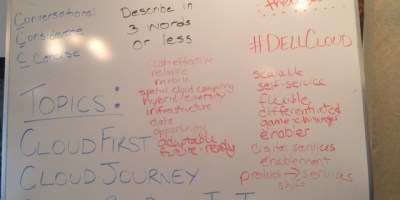 Conversational
Considerate
Concise
Describe in
3 words
or less
#DELLCLOUD
TOPICS:
cost-effective
reliable
hybrid/diversity
infrastructure
data
opportunity
adaptable
future-ready
scalable
self-service
flexible
differentiated
game-changer
enabler
digital services
enablement
product → services
shift
CLOUD FIRST
CLOUD JOURNEY